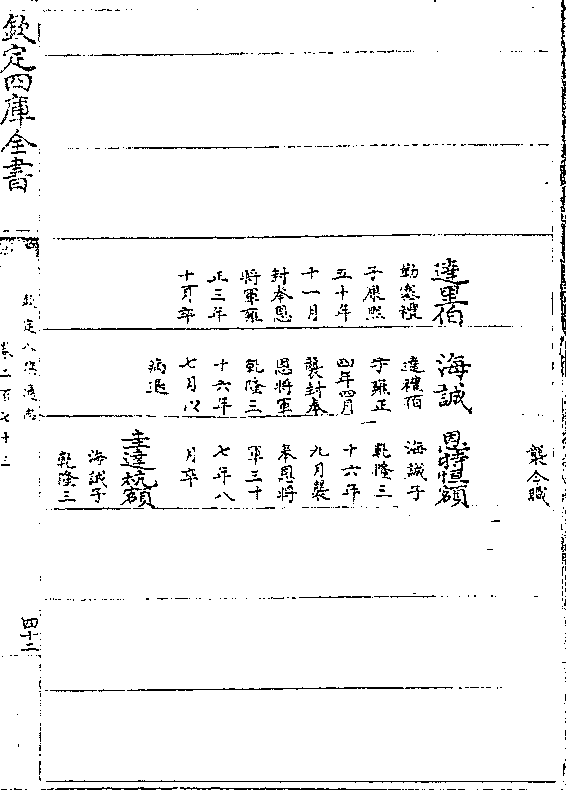 襲今職
達里伯
勒塞禮
子康熙
五十年
十一月
封奉恩
將軍雍
正三年
十月卒
海誠
達禮伯
子雍正
四年四月
襲封奉
恩將軍
乾隆三
十六年
七月以
病退
恩特恒額
海誠子
乾隆三
十六年
九月襲
奉恩將
軍三十
七年八
月卒
圭達杭額
海誠子
乾隆三
欽定四庫全書
欽定八旗通志
卷二百七十三
四十二